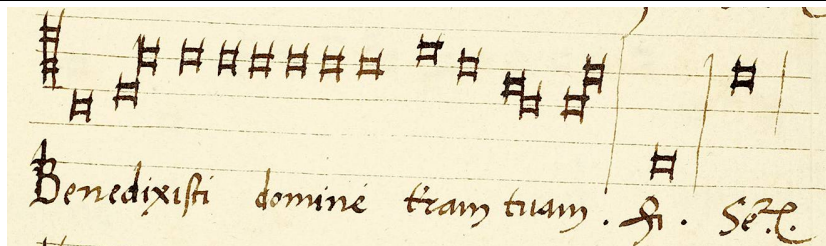 Benedixisti domine tram tuam . fi . Sec.